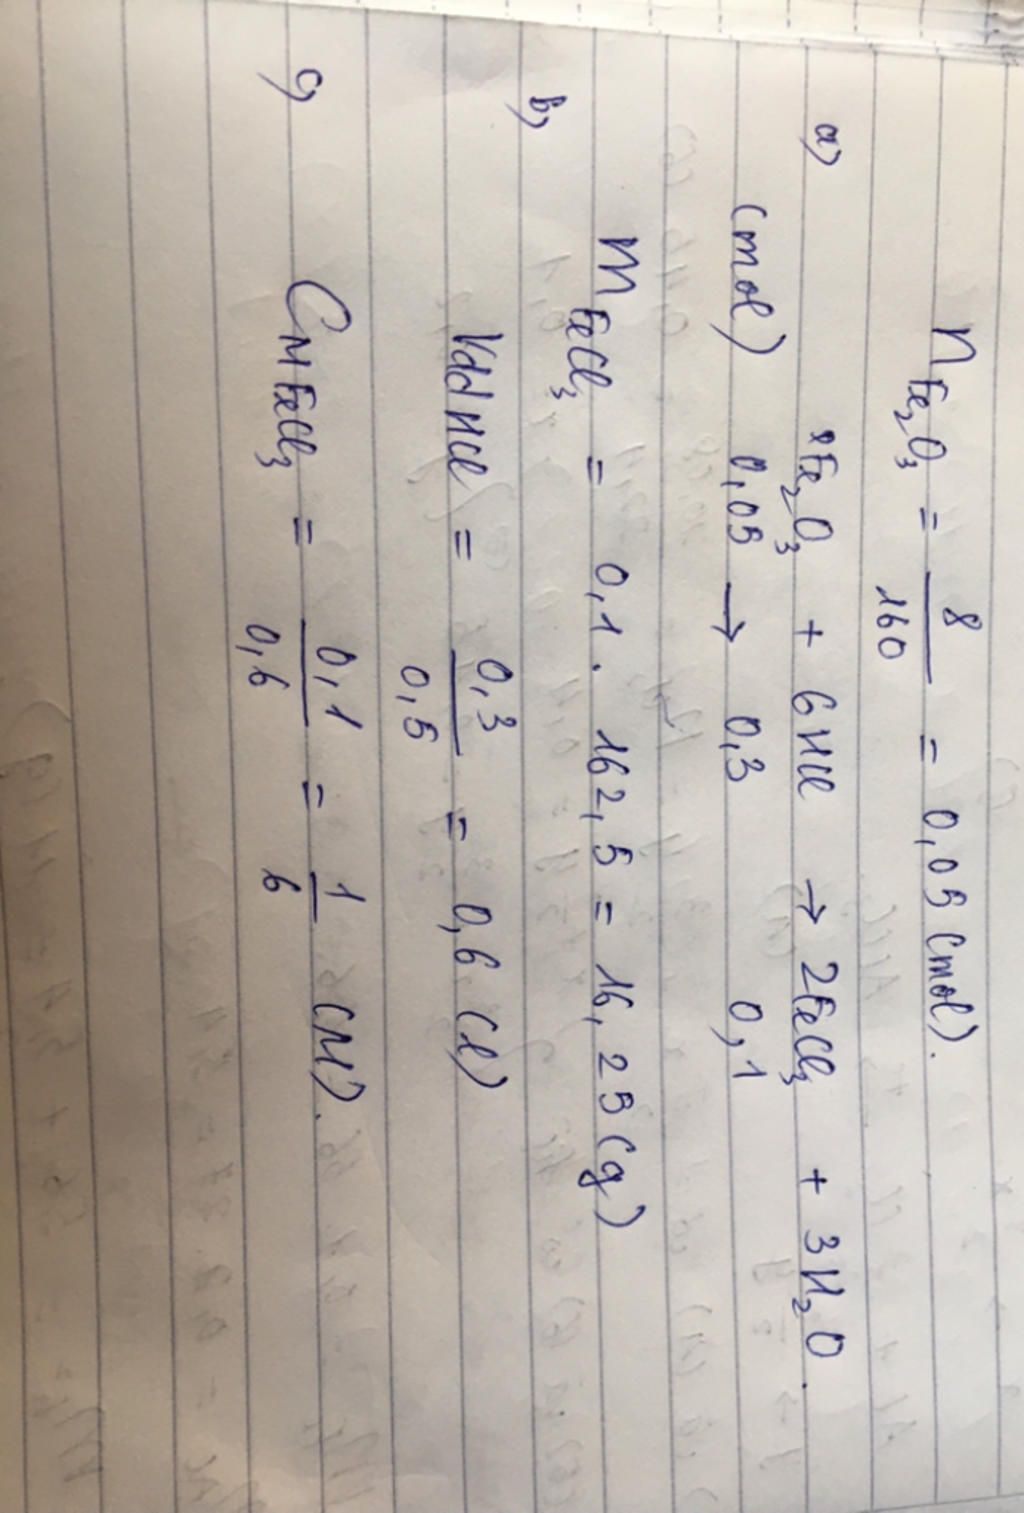 n Fe₂O₃ = 8/160 = 0,05 (mol).
a) Fe₂O₃ + 6HCl → 2FeCl₃ + 3H₂O.
(mol) 0,05 → 0,3 0,1
m FeCl₃ = 0,1 . 162,5 = 16,25 (g)
b) Vdd HCl = 0,3/0,5 = 0,6 (l)
c) CM FeCl₃ = 0,1/0,6 = 1/6 (M).